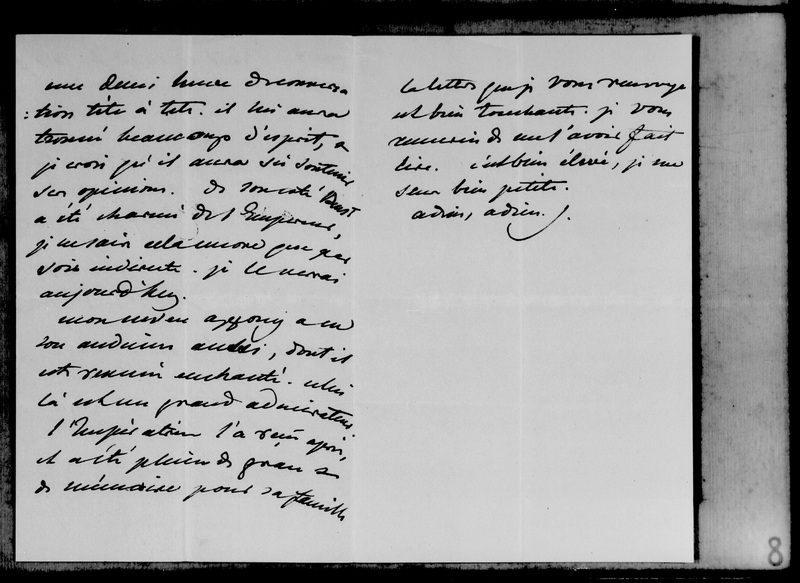 une demi heure de conversa
: tion tête à tête. il lui aura
trouvé beaucoup d'esprit, &
je crois qu'il aura su soutenir
ses opinions. de son coté Beust
a été charmé de l'Empereur,
je ne sais cela encore que par
voie indirecte. je le verrai
aujourd'hui.
mon neveu appony a eu
son audience aussi, dont il
est revenu enchanté. celui
là est un grand admirateur.
l'Impératrice l'a reçu après,
et a été pleine de grace &
de mémoire pour sa famille
la lettre que je vous renvoye
est bien touchante. je vous
remercie de me l'avoir fait
lire. c'est bien élevé, je me
sens bien petite.
adieu, adieu.
8